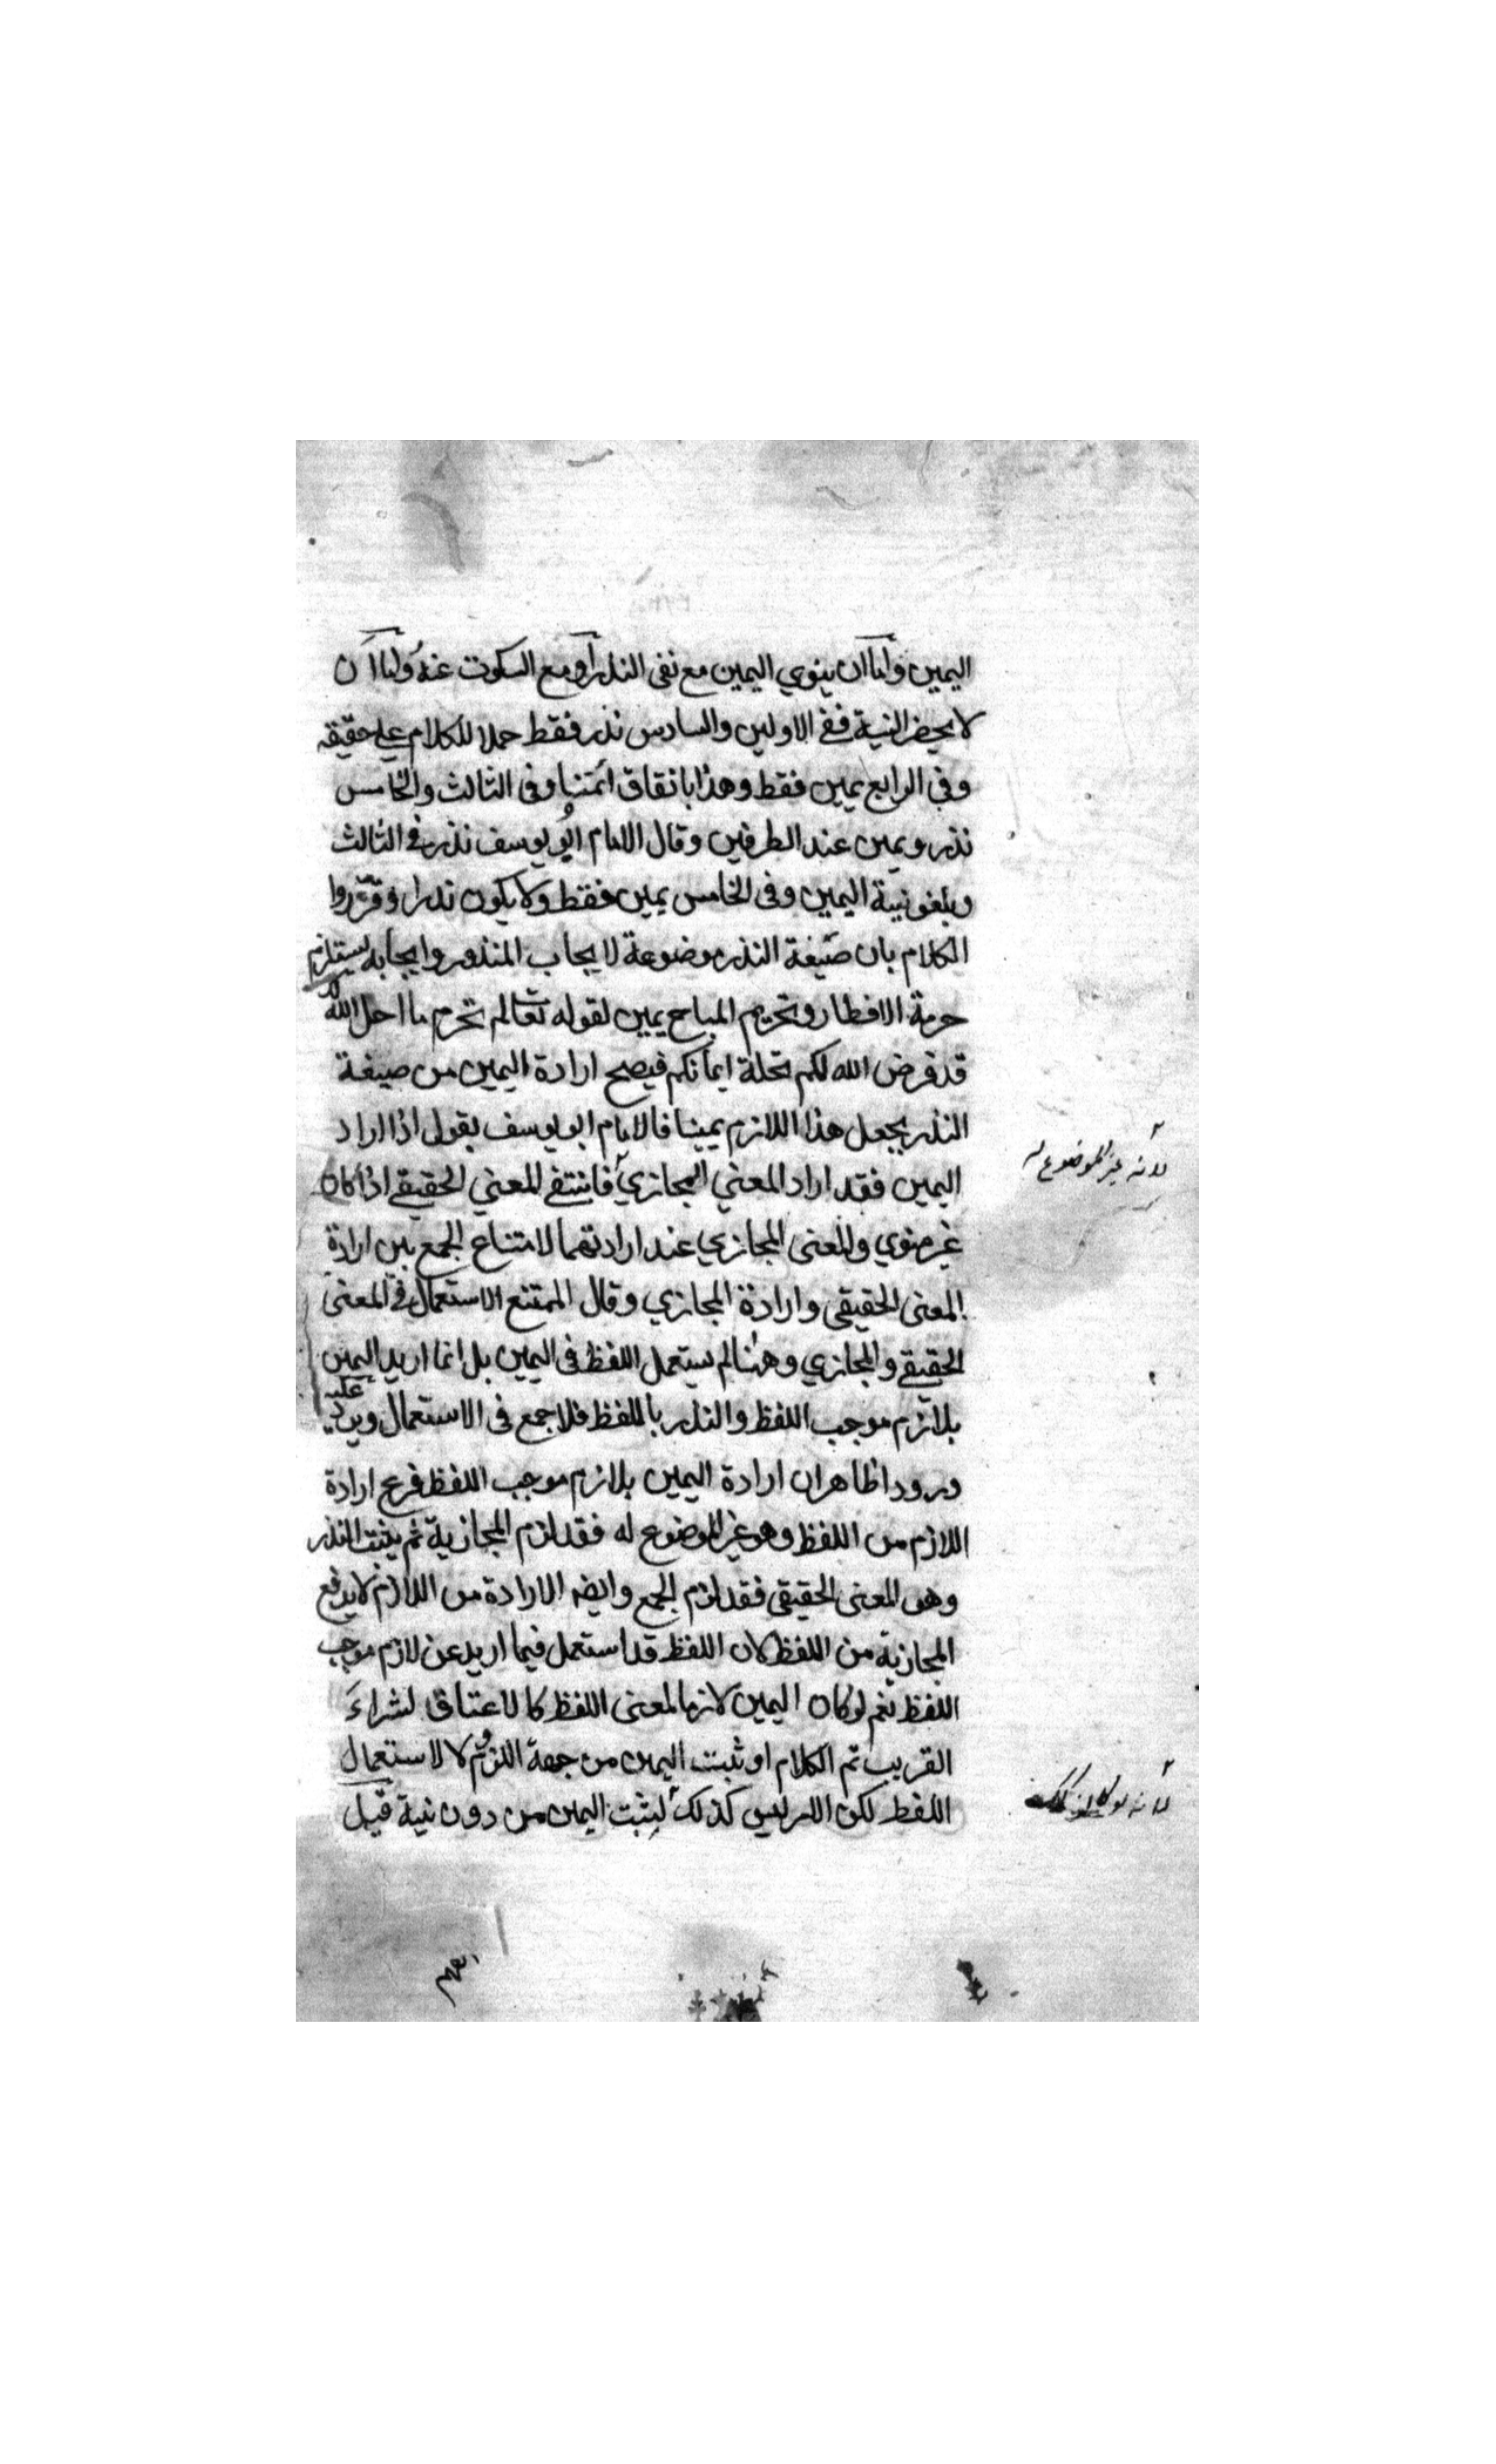 اليمين واما ان ينوي اليمين مع نفى النذر او مع السكوت عنه واما ان
لا يحضر النية ففي الاولين والسادس نذر فقط حملا للكلام علي حقيقته
وفي الرابع يمين فقط وهذا باتفاق ائمتنا وفى الثالث والخامس
نذر ويمين عند الطرفين وقال الامام ابو يوسف نذر في الثالث
ويلغو نية اليمين وفى الخامس يمين فقط ولا يكون نذرا وقرروا
الكلام بان صيغة النذر موضوعة لايجاب المنذور وايجابه يستلزم
حرمة الافطار وتحريم المباح يمين لقوله تعالى لم تحرم ما احل الله لك
قد فرض الله لكم تحلة ايمانكم فيصح ارادة اليمين من صيغة
النذر بجعل هذا اللازم يمينا فالامام ابو يوسف يقول اذا اراد
اليمين فقد اراد المعني المجازي فانتفي المعني الحقيقي اذا كان
غير منوي والمعنى المجازي عند ارادتهما لامتناع الجمع بين ارادة
المعنى الحقيقي وارادة المجازي وقال الممتنع الاستعمال في المعنى
الحقيقي والمجازي وههنا لم يستعمل اللفظ فى اليمين بل انما اريد اليمين
بلازم موجب اللفظ والنذر باللفظ فلا جمع فى الاستعمال ويرد عليه
ورودا ظاهرا ان ارادة اليمين بلازم موجب اللفظ فرع ارادة
اللازم من اللفظ وهو غير الموضوع له فقد لزم المجازية ثم يثبت النذر
وهو المعنى الحقيقي فقد لزم الجمع وايضا الارادة من اللازم لا يدفع
المجازية من اللفظ لان اللفظ قد استعمل فيما اريد عن لازم موجب
اللفظ نعم لو كان اليمين لازما لمعنى اللفظ كالاعتاق لشراء
القريب تم الكلام او ثبت اليمين من جهة اللزوم لا الاستعمال
اللفظ لكن الامر ليس كذلك ليثبت اليمين من دون نية قيل
لانه غير الموضوع له
لانه لو كان كذلك